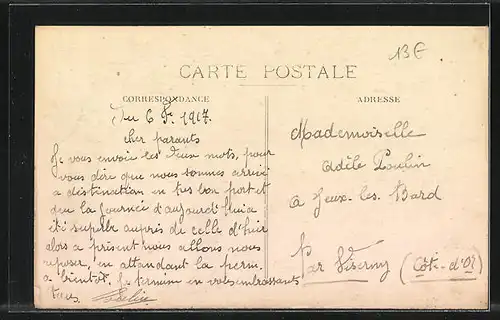 13 E
CARTE POSTALE
CORRESPONDANCE
ADRESSE
Du 6 Fr 1917.
cher parants
Je vous envoie les deux mots, pour
vous dire que nous sommes arrivé
a distination en tres bon port et
que la Journée d'aujourd'hui a
été superbe aupris de celle d'hier
alors a présent nous allons nous
reposer, en attandant la perm.
a bientot. Je termine en vous embrassant
tous
Mademoiselle
Adèle Poulin
a Jeux-les. Bard
Par Viserny (Côte-d'Or)